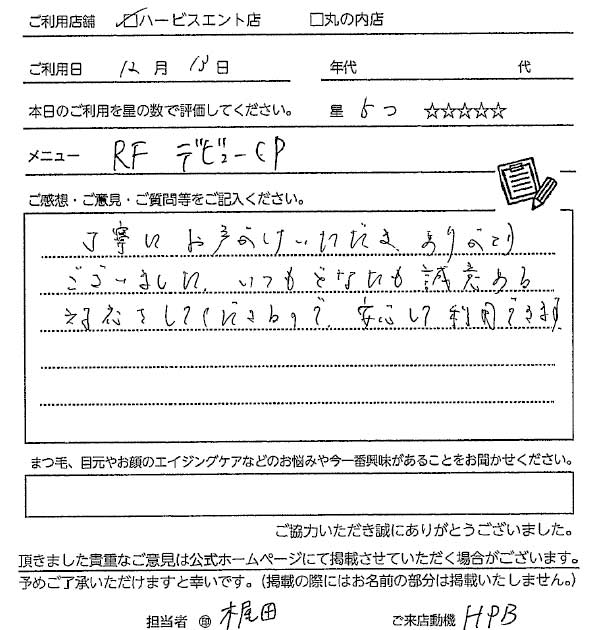 ご利用店舗 ☑ハービスエント店 □丸の内店
ご利用日 12月 13日 年代 代
本日のご利用を星の数で評価してください。 星 5つ ☆☆☆☆☆
メニュー RF デビューCP
ご感想・ご意見・ご質問等をご記入ください。
丁寧に お声がけいただき、ありがとう
ございました。いつもどなたも誠意ある
対応をしてくださるので、安心して利用できます
まつ毛、目元やお顔のエイジングケアなどのお悩みや今一番興味があることをお聞かせください。
ご協力いただき誠にありがとうございました。
頂きました貴重なご意見は公式ホームページにて掲載させていただく場合がございます。
予めご了承いただけますと幸いです。（掲載の際にはお名前の部分は掲載いたしません。）
担当者 ㊞ 梶田 ご来店動機 HPB